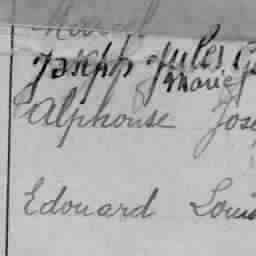 Joseph Jules G
Marie
Alphonse Jose
Edouard Louis